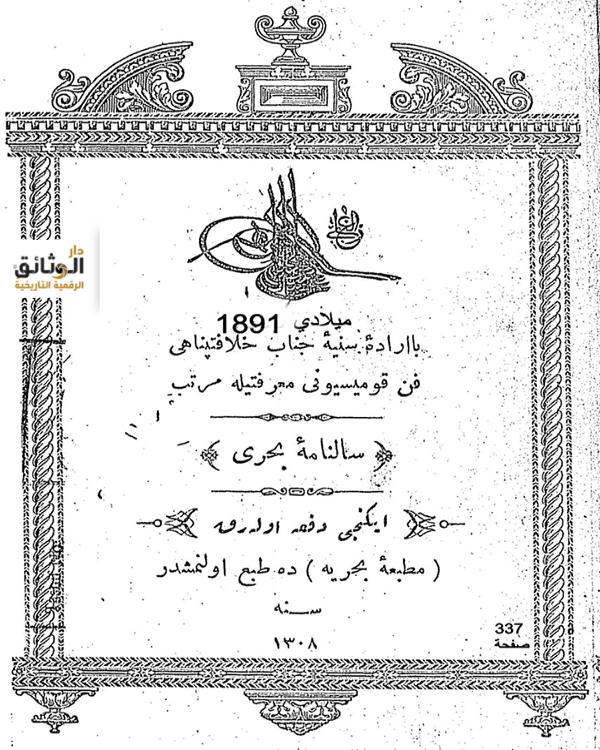 الغازى
دار
الوثائق
الرقمية التاريخية
ميلادي 1891
باارادهٔ سنيهٔ جناب خلافتپناهى
فن قوميسيونى معرفتيله مرتب
سالنامهٔ بحرى
ايكنجى دفعه اوله‌رق
( مطبعهٔ بحريه ) ده طبع اولنمشدر
سنه
١٣٠٨
337
صفحة